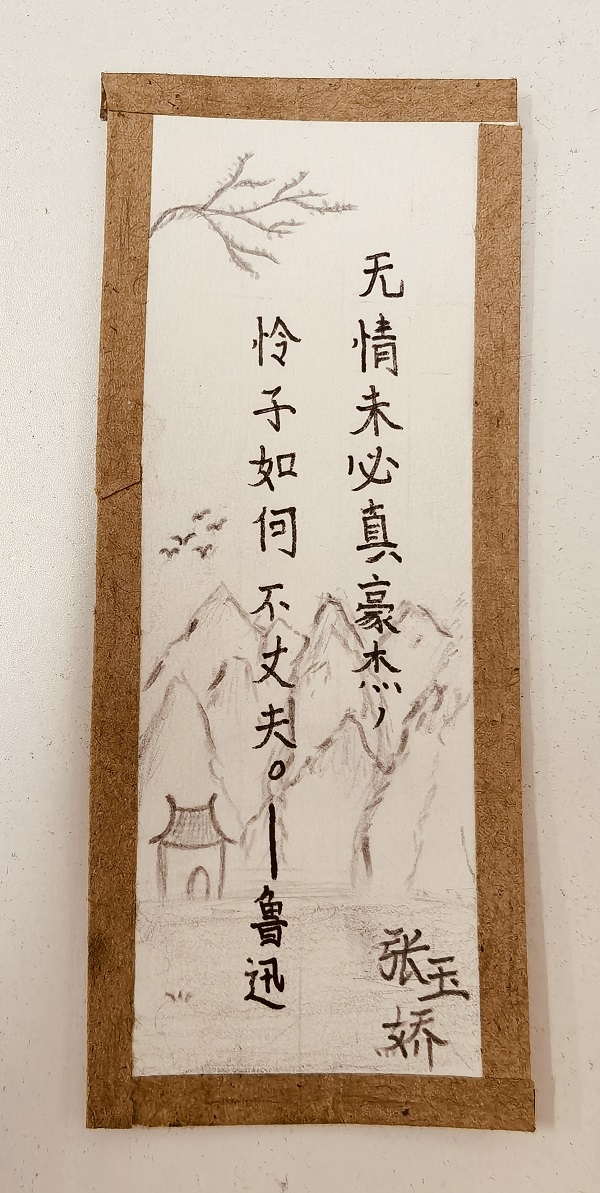 无情未必真豪杰，
怜子如何不丈夫。—鲁迅
张玉
娇